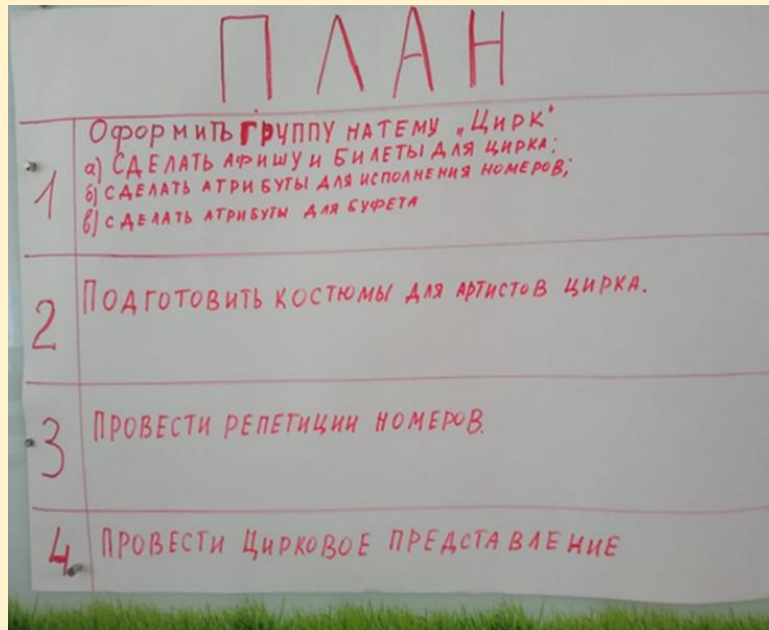 ПЛАН
1 Оформить группу на тему „Цирк"
а) сделать афишу и билеты для цирка;
б) сделать атрибуты для исполнения номеров;
в) сделать атрибуты для буфета
2 Подготовить костюмы для артистов цирка.
3 Провести репетиции номеров.
4. Провести цирковое представление